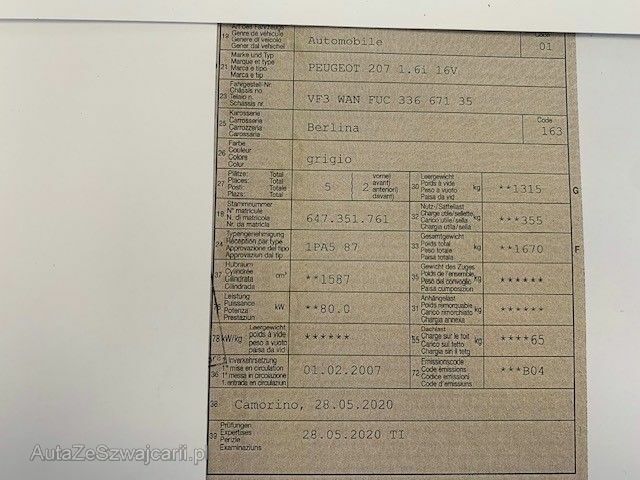 Art des Fahrzeugs
19 Genre de véhicule
Genere di veicolo
Gener dal vehichel
Automobile
Code
01
Marke und Typ
21 Marque et type
Marca e tipo
Marca e tip
PEUGEOT 207 1.6i 16V
Fahrgestell-Nr.
23 Châssis no
Telaio n.
Schassis nr.
VF3 WAN FUC 336 671 35
Karosserie
25 Carrosserie
Carrozzeria
Carossaria
Berlina
Code
163
Farbe
26 Couleur
Colore
Colur
grigio
Plätze: Total
27 Places: Total
Posti: Totale
Plazs: Total
5
2
vorne)
avant)
anteriori)
davant)
Leergewicht
30 Poids à vide kg
Peso a vuoto
Paisa da vid
**1315
G
Stammnummer
18 N° matricule
N. di matricola
Nr. da matricla
647.351.761
Nutz-/Sattellast
32 Charge utile/sellette kg
Carico utile/sella
Chargia util/sella
***355
Typengenehmigung
24 Réception par type
Approvazione del tipo
Approvaziun dal tip
1PA5 87
Gesamtgewicht
33 Poids total kg
Peso totale
Paisa totala
**1670
F
Hubraum
37 Cylindrée cm³
Cilindrata
Cilindrada
**1587
Gewicht des Zuges
35 Poids de l'ensemble kg
Peso del convoglio
Paisa cumposiziun
******
Leistung
76 Puissance kW
Potenza
Prestaziun
**80.0
Anhängelast
31 Poids remorquable kg
Peso rimorchiato
Chargia annexa
******
Leergewicht
78 kW/kg poids à vide
peso a vuoto
paisa da vid
******
Dachlast
55 Charge sur le toit kg
Carico sul tetto
Chargia sin il tetg
****65
1. Inverkehrsetzung
36 1re mise en circulation
1a messa in circolazione
1. entrada en circulaziun
01.02.2007
Emissionscode
72 Code émissions
Codice emissioni
Code d'emissiuns
***B04
38 Camorino, 28.05.2020
Prüfungen
39 Expertises
Perizie
Examinaziuns
28.05.2020 TI
AutaZeSzwajcarii.pl